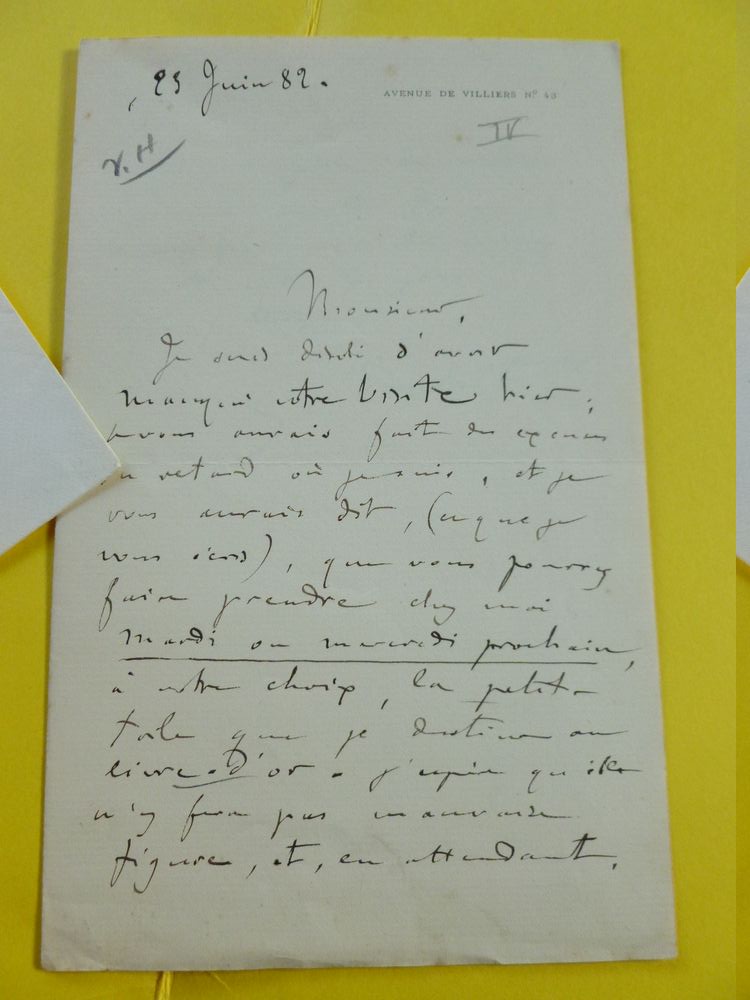 23 Juin 82.
AVENUE DE VILLIERS Nº 43
IV
V. H
Monsieur,
Je suis désolé d'avoir
manqué votre visite hier,
je vous aurais fait des excuses
du retard où je suis, et je
vous aurais dit, (ce que je
vous écris), que vous pourrez
faire prendre chez moi
mardi ou mercredi prochain,
à votre choix, la petite
toile que je destine au
livre d'or. J'espère qu'elle
n'y fera pas mauvaise
figure, et, en attendant,